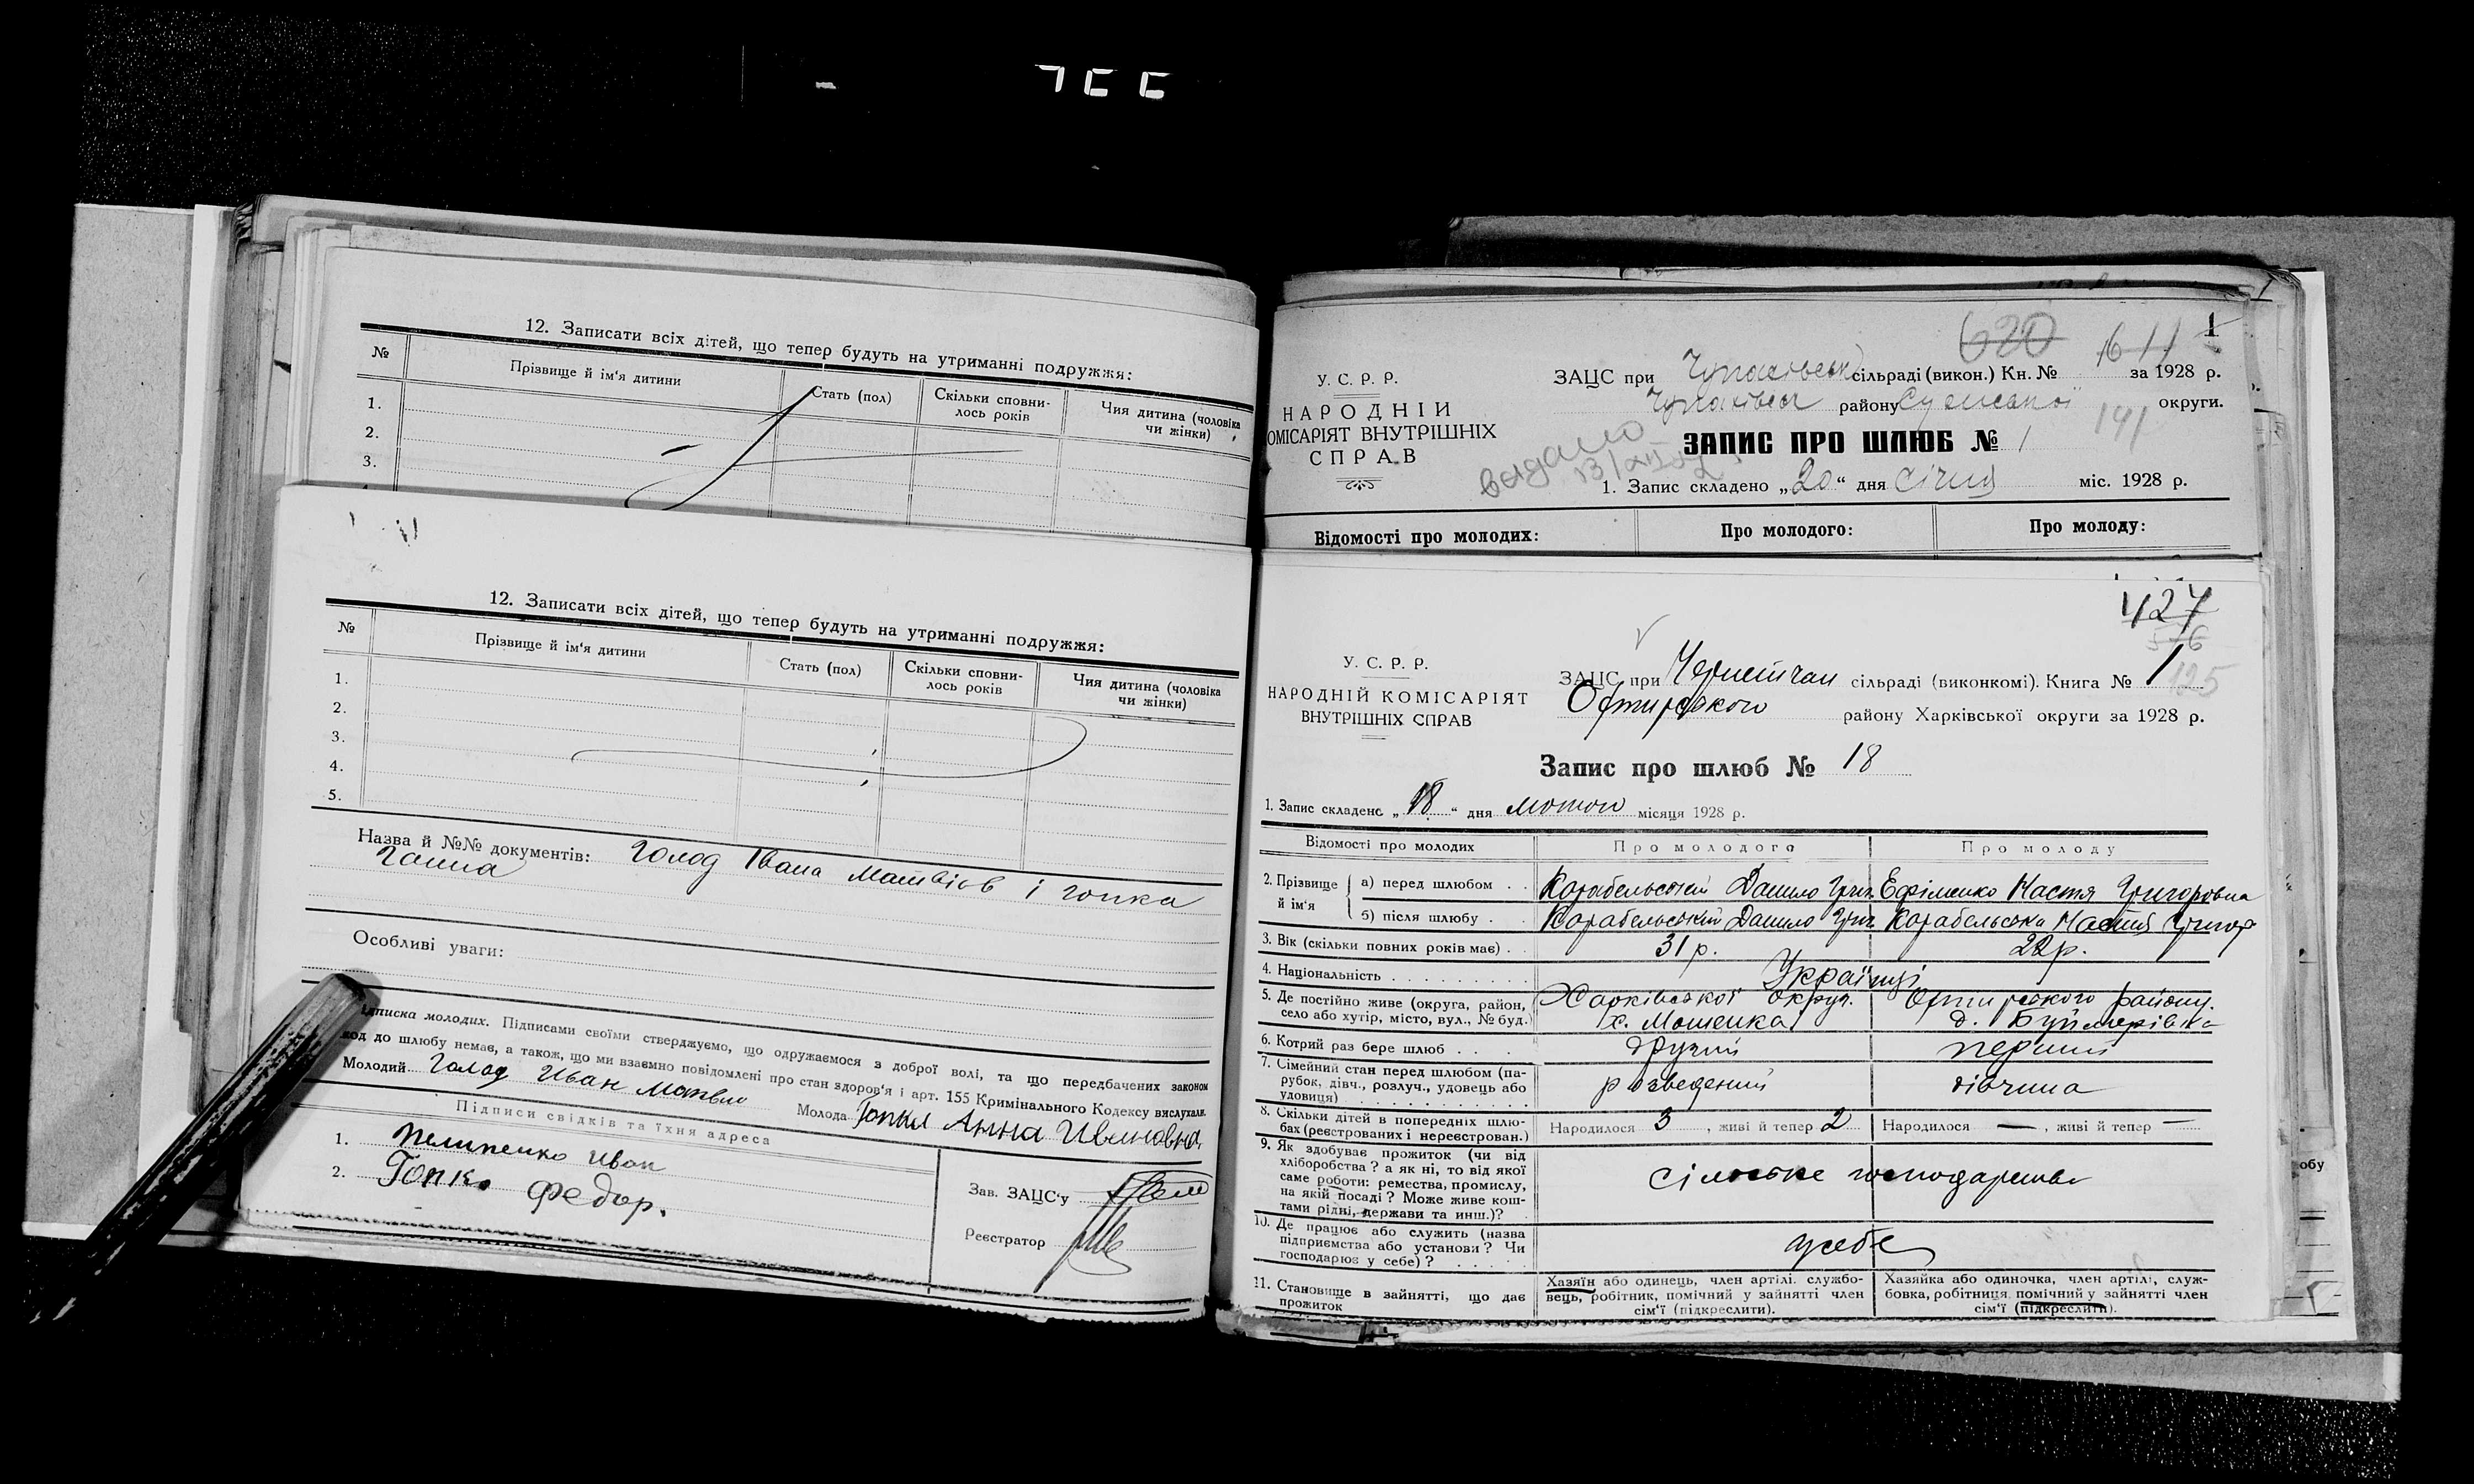 12. Записати всіх дітей, що тепер будуть на утриманні подружжя:
№ Прізвище й ім'я дитини Стать (пол) Скільки сповни-лось років Чия дитина (чоловіка чи жінки)
1.
2.
3.
12. Записати всіх дітей, що тепер будуть на утриманні подружжя:
№ Прізвище й ім'я дитини Стать (пол) Скільки сповни-лось років Чия дитина (чоловіка чи жінки)
1.
2.
3.
4.
5.
Назва й №№ документів: Голод Івана Матвіїв і гопка
Ганна
Особливі уваги:
ідписка молодих. Підписами своїми стверджуємо, що одружаємося з доброї волі, та що передбачених законом
код до шлюбу немає, а також, що ми взаємно повідомлені про стан здоров'я і арт. 155 Кримінального Кодексу вислухали.
Молодий Голод Иван Молода Анна Ивановна
Підписи свідків та їхня адреса
1. Пелипенко Иван
2. Гопка Федор.
Зав. ЗАЦС'у
Реєстратор
620 611 1
У. С. Р. Р.
НАРОДНІЙ
ОМІСАРІЯТ ВНУТРІШНІХ
СПРАВ
ЗАЦС при сільраді (викон.) Кн. № за 1928 р.
району округи.
141
видано
ЗАПИС ПРО ШЛЮБ № 1
1. Запис складено „20“ дня Січня міс. 1928 р.
Відомості про молодих: Про молодого: Про молоду:
427
576
У. С. Р. Р.
НАРОДНІЙ КОМІСАРІЯТ
ВНУТРІШНІХ СПРАВ
ЗАЦС при сільраді (виконкомі). Книга № 1
125
району Харківської округи за 1928 р.
Запис про шлюб № 18
1. Запис складено „18“ дня лютого місяця 1928 р.
Відомості про молодих Про молодого Про молоду
2. Прізвище й ім'я а) перед шлюбом . . Корабельський Данило Григ. Ефіменко Настя Григоровна
б) після шлюбу . Корабельський Данило Григ. Корабельська Настя Григор
3. Вік (скільки повних років має) . . 31 р. 22 р.
4. Національність . . . . . . . . . Українці
5. Де постійно живе (округа, район, село або хутір, місто, вул., № буд.) Харківської округ. х. Мошенка Охтирського району. д. Буймерівка
6. Котрий раз бере шлюб . . . . другий перший
7. Сімейний стан перед шлюбом (па-рубок, дівч., розлуч., удовець або удовиця) . . . . . . . . . . . розведений дівчина
8. Скільки дітей в попередніх шлю-бах (реєстрованих і нереєстрован.) Народилося 3, живі й тепер 2 Народилося —, живі й тепер —
9. Як здобуває прожиток (чи від хліборобства? а як ні, то від якої саме роботи: ремества, промислу, на якій посаді? Може живе кош-тами рідні, держави та инш.)? Сільське господарство
10. Де працює або служить (назва підприємства або установи? Чи господарює у себе)? . . . . . у себе
11. Становище в зайнятті, що дає прожиток Хазяїн або одинець, член артілі, службо-вець, робітник, помічний у зайнятті член сім'ї (підкреслити). Хазяйка або одиночка, член артілі, служ-бовка, робітниця, помічний у зайнятті член сім'ї (підкреслити).
обу